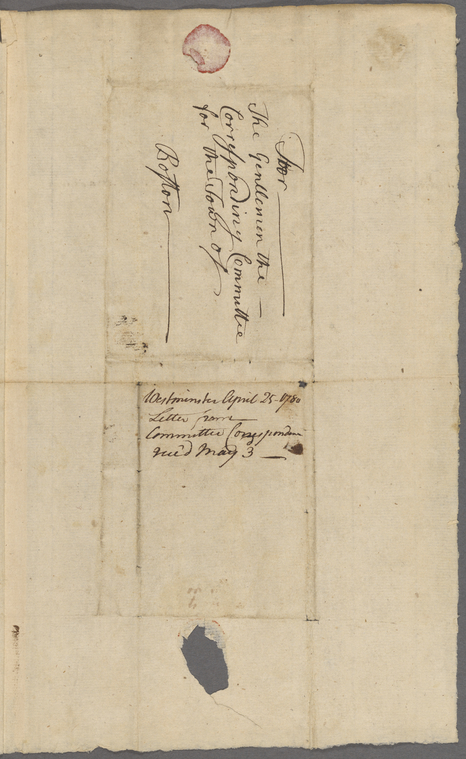 For
The Gentlemen the
Corresponding Committee
for the Town of
Boston
Westminster April 25 1780
Letter from
Committee Corresponden
rec'd May 3